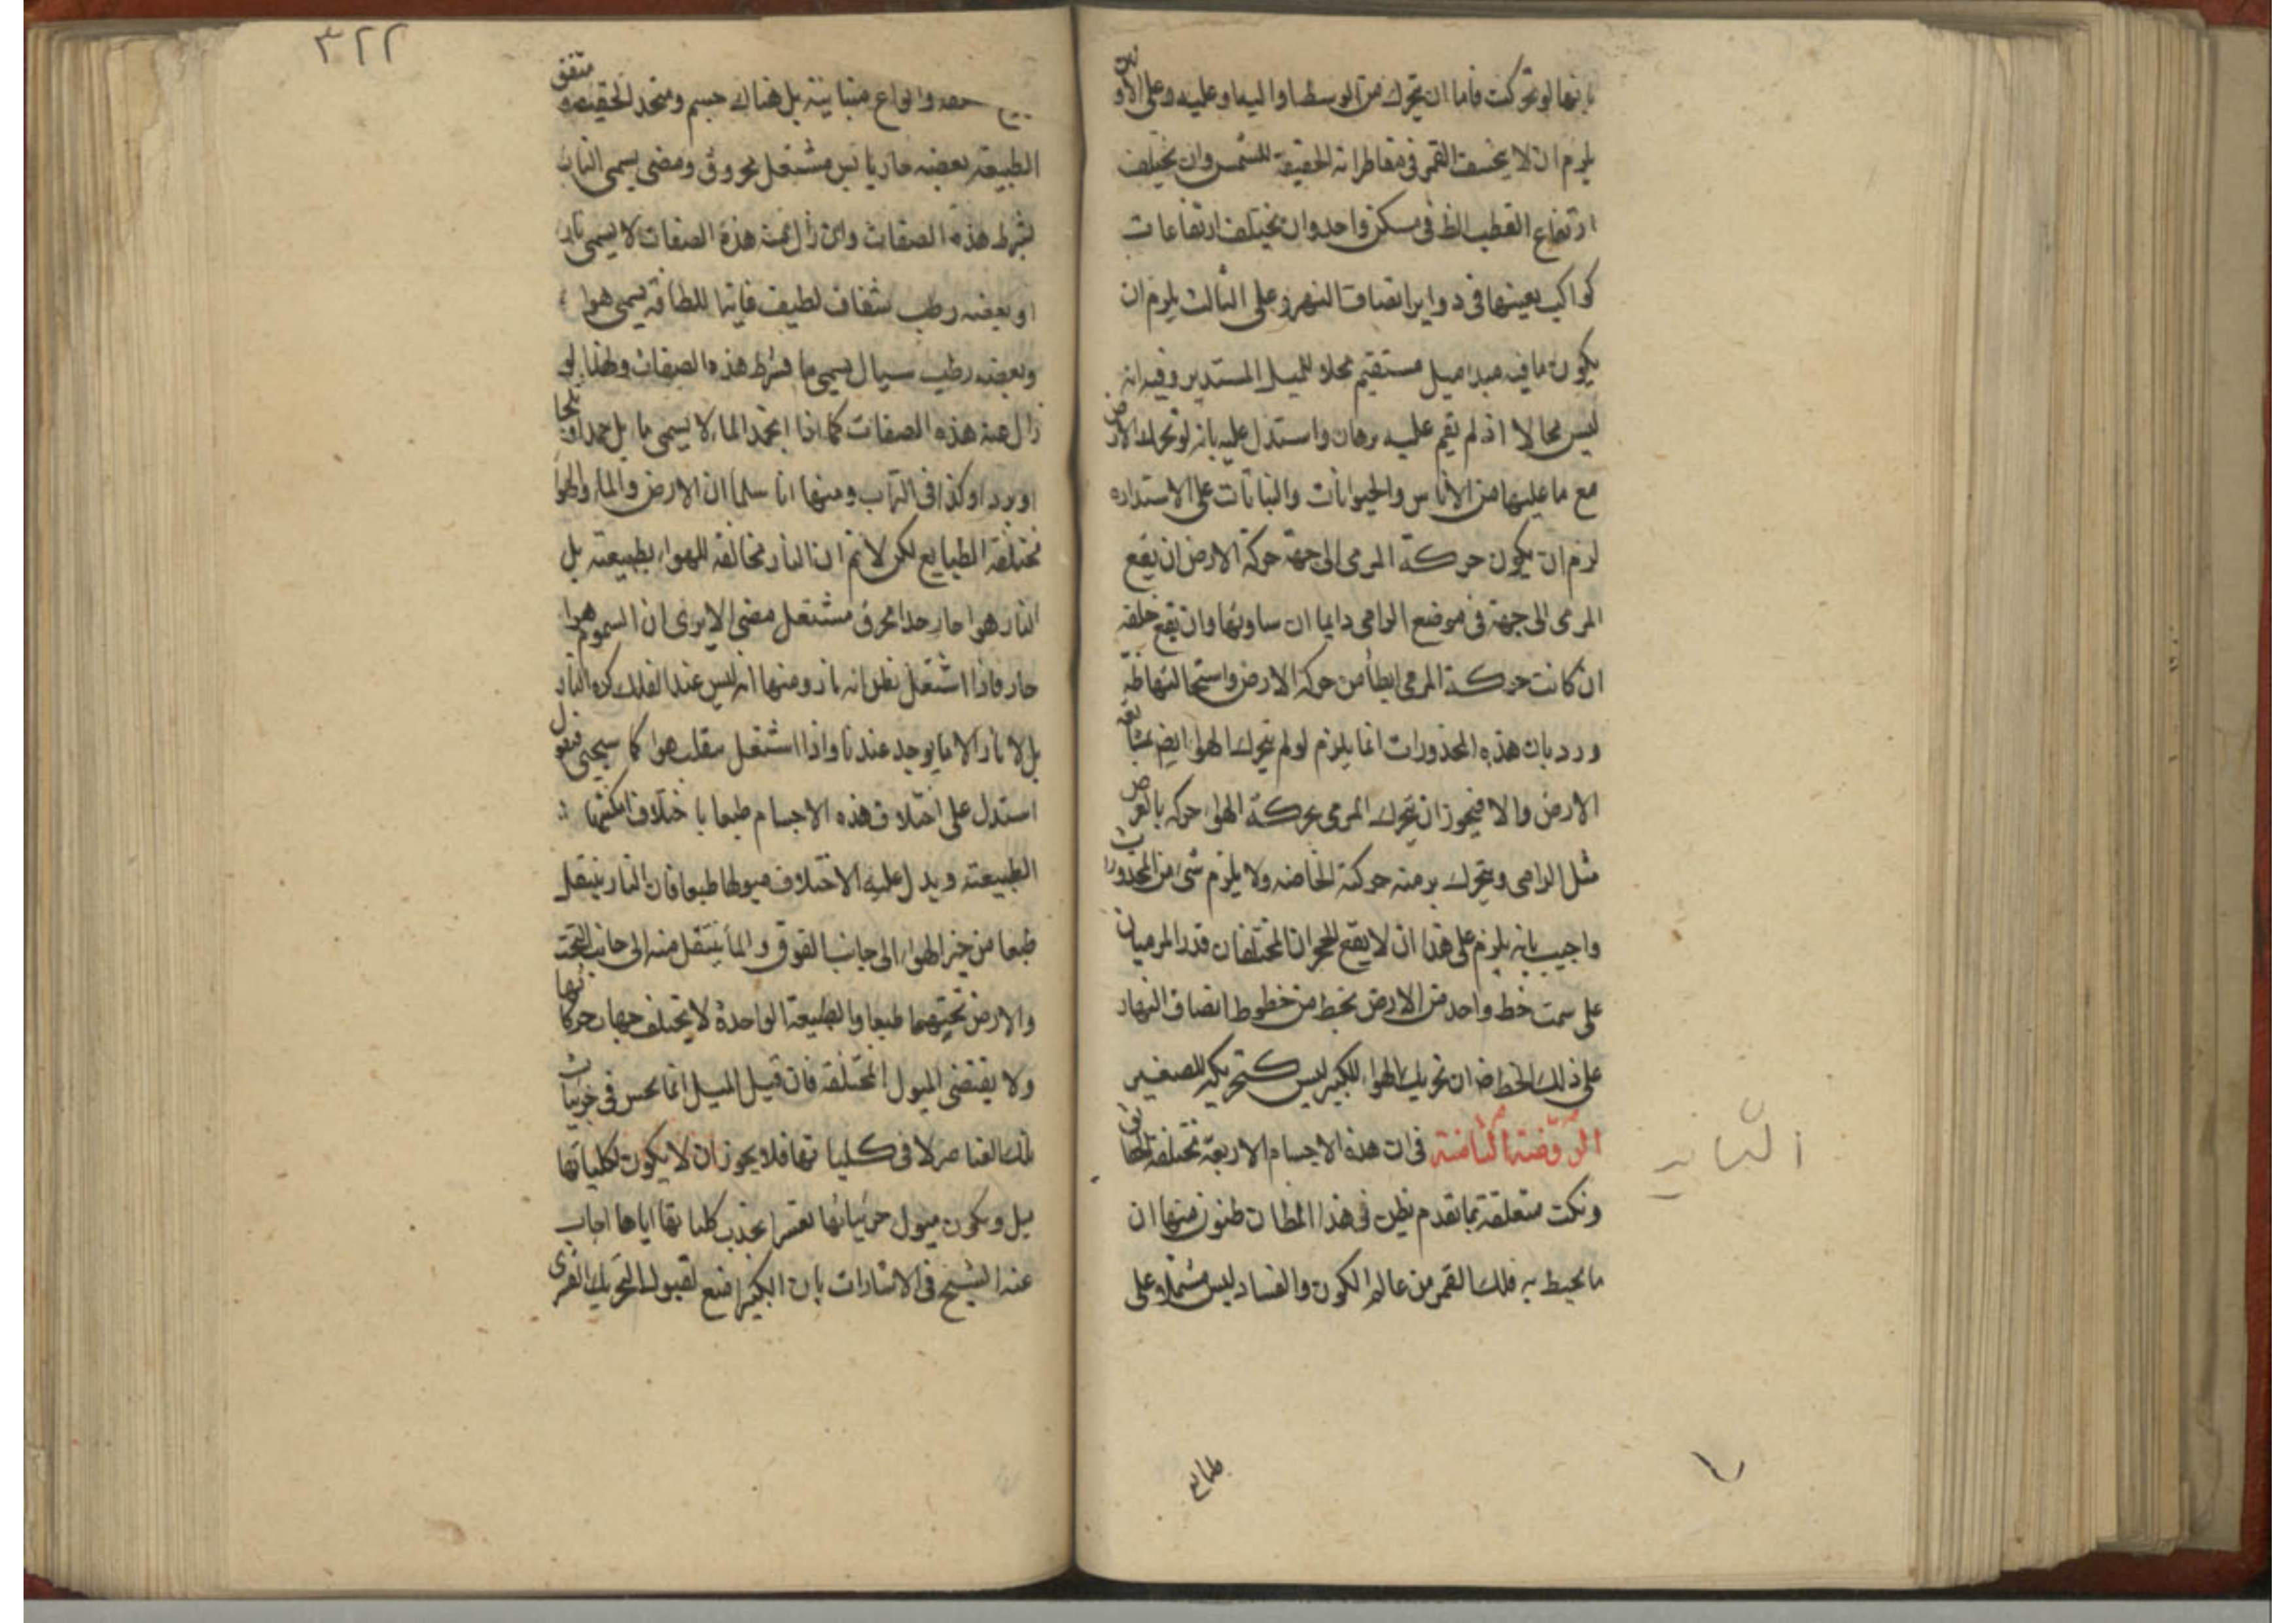 بانها لو تحركت فاما ان يتحرك من الوسط او اليه او عليه وعلى الاولين
يلزم ان لا ينخسف القمر في مقاطراته الحقيقية للشمس وان يختلف
ارتفاع القطب الظ في مسكن واحد وان يختلف ارتفاعات
كواكب بعينها في دواير انصاف النهر وعلى الثالث يلزم ان
يكون ما فيه مبدا ميل مستقيم محلا للميل المستدير وفيه انه
ليس محالا اذ لم يقم عليه برهان واستدل عليه بانه لو تحرك الارض
مع ما عليها من الاناس والحيوانات والنباتات على الاستداره
لزم ان يكون حركة المرمى الى جهة حركة الارض ان يقع
المرمى الى جهة في موضع الرامى دايما ان ساوتها وان يقع خلفه
ان كانت حركة المرمى ابطأ من حركة الارض واستحالتها ظ
ورد بان هذه المحذورات انما يلزم لو لم يتحرك الهوا ايض بمشايعة
الارض والا فيجوز ان يتحرك المرمى بحركة الهوا حركة بالعرض
مثل الرامى ويتحرك برميه حركته الخاصه ولا يلزم شى من المحذورات
واجيب بانه يلزم على هذا ان لا يقع الحجران المختلفان قدرا المرميان
على سمت خط واحد من الارض بخط من خطوط انصاف النهار
على ذلك الخط ض ان تحريك الهوا للكبير ليس كتحريكه للصغير
الروضة الثامنة في ان هذه الاجسام الاربعة مختلفة الحقايق
ونكت متعلقة بما تقدم يظن في هذا المظان ظنون منها ان
ما يحيط به فلك القمر من عالم الكون والفساد ليس مشتملا على
طبايع
٣٢٢
وانواع متباينة بل هناك جسم متحد الحقيقة و متفق
الطبيعة بعضه حار يابس مشتعل محروق ومضى يسمى النار
بشرط هذه الصفات وان زال عنه هذه الصفات لا يسمى نارا
او بعضه رطب شفاف لطيف فانها للطافة يسمى هوا
وبعضه رطب سيال يسمى ما بشرط هذه الصفات ولهذا لو
زال عنه هذه الصفات كما اذا انجمد الماء لا يسمى ما بل جمدا او ثلجا
او بردا وكذا في التراب ومنها انا سلمنا ان الارض والماء والهوا
مختلفة الطبايع لكن لا نم ان النار مخالفة للهواء بطبيعته بل
النار هوا حار جدا محرق مشتعل مضى الا يرى ان السموم هوا
حار فاذا اشتعل يظن انه نار ومنها انه ليس عند الفلك كرة النار
بل لا نار الا ما يوجد عندنا واذا اشتعل ينقلب هوا كما سيجيى فنقول
استدل على اختلاف هذه الاجسام طبعا باختلاف امكنتها
الطبيعته ويدل عليه الاختلاف ميولها طبعا فان النار ينتقل
طبعا من حيز الهواء الى جانب الفوق والماء ينتقل منه الى جانب التحت
والارض تحتهما طبعا والطبيعة الواحدة لا يختلف جهات حركاتها
ولا يقتضى الميول المختلفة فان قيل الميل انما يحس في جزئيات
تلك العناصر لا في كلياتها فلا يجوز ان لا يكون لكلياتها
ميل ويكون ميول جزئياتها بقسر يجذب كلياتها اياها اجاب
عنه الشيخ في الاشارات بان الكبير امنع لقبول التحريك القسرى